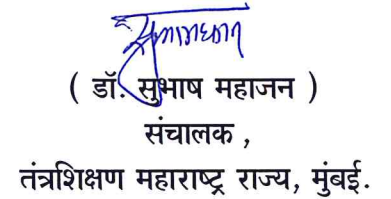 ( डॉ. सुभाष महाजन )
संचालक ,
तंत्रशिक्षण महाराष्ट्र राज्य, मुंबई.